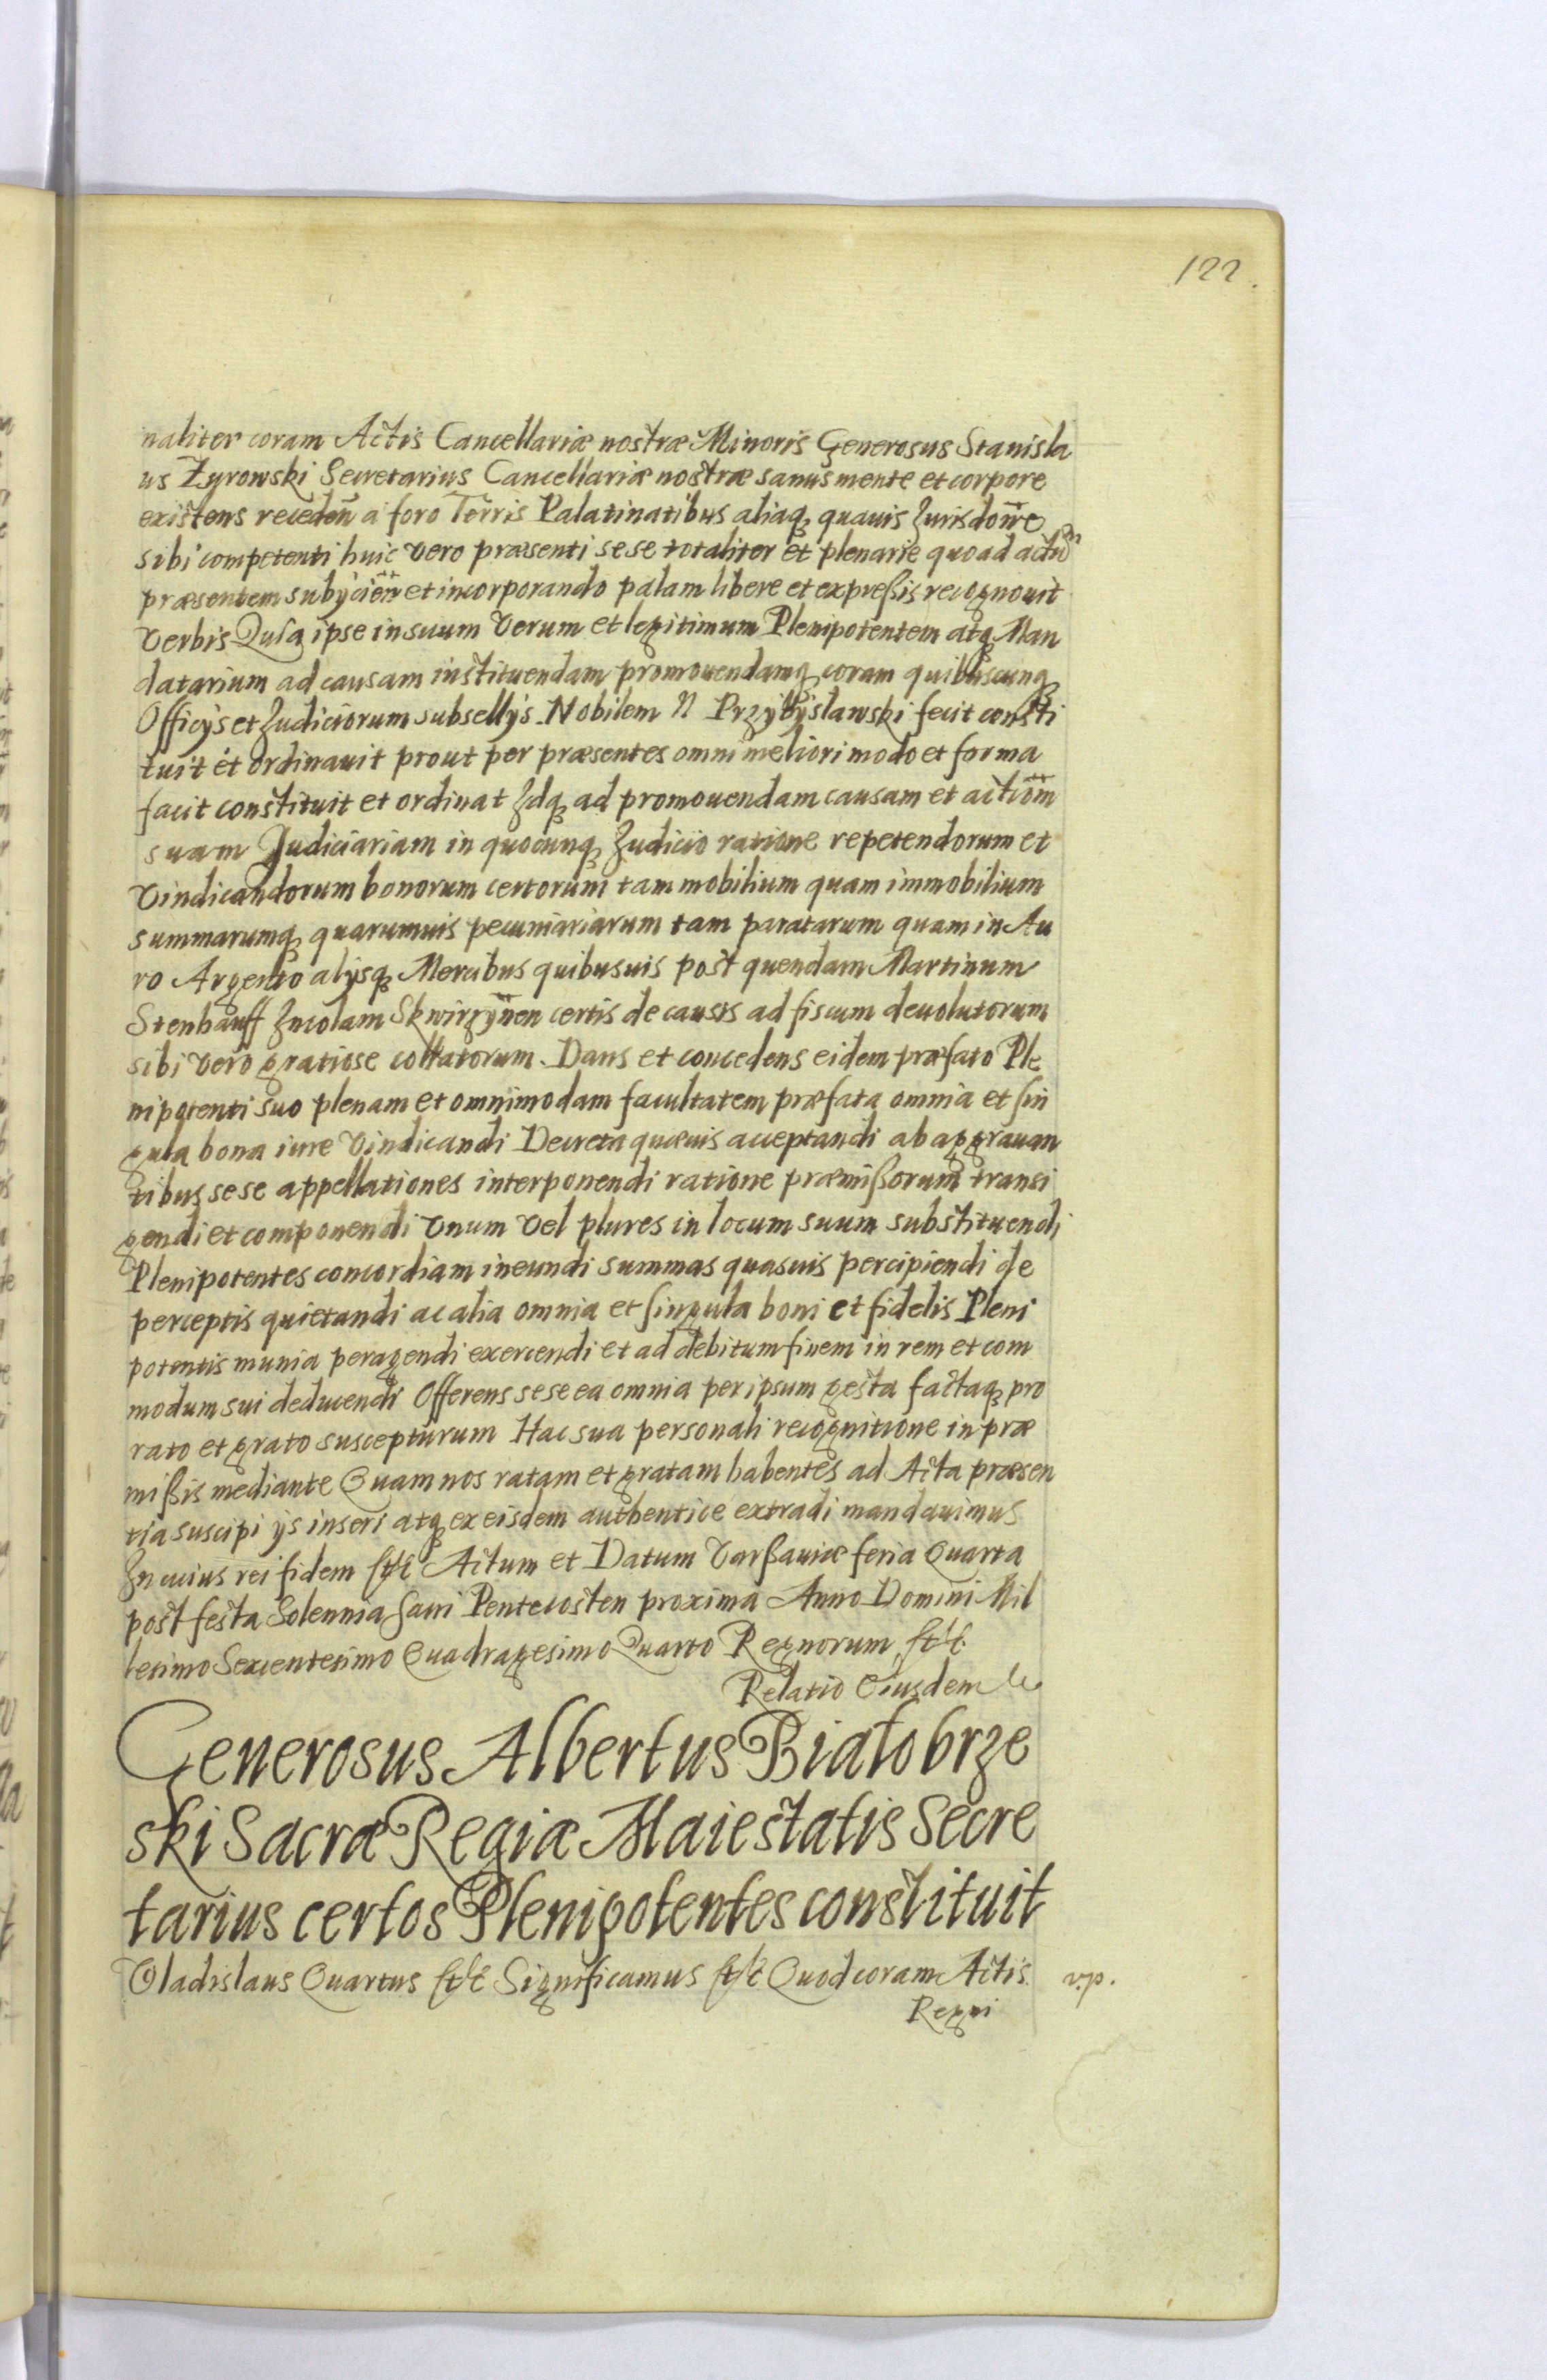 122.
naliter coram Actis Cancellariæ nostræ Minoris Generosus Stanisla
us Żyrowski Secretarius Cancellariæ nostræ sanus mente et corpore
existens recedeñ a foro Terris Palatinatibus aliaq quauis Jurisdoñe
sibi competenti huic vero præsenti sese totaliter et plenarie quoad actũ
præsentem subÿcieñ et incorporando palam libere et expreßis recognouit
verbis Quia ipse in suum verum et legitimum Plenipotentem atq Man
datarium ad causam instituendam promouendamq coram quibuscunq
Officÿs et Judiciorum subsellÿs Nobilem N Przybÿslawski fecit consti
tuit et ordinauit prout per præsentes omni meliori modo et forma
facit constituit et ordinat Idq ad promouendam causam et actioñm
suam Judiciariam in quocunq Judicio ratione repetendorum et
vindicandorum bonorum certorum tam mobilium quam immobilium
summarumq quarumuis pecuniariarum tam paratarum quam in Au
ro Argento alÿsq Mercibus quibusuis post quendam Martinum
Stenhauff Incolam Skwirzyneñ certis de causis ad fiscum deuolutorum
sibi vero gratiose collatorum. Dans et concedens eidem præfato Ple
nipotenti suo plenam et omnimodam facultatem præfata omnia et sin
gula bona iure vindicandi Decreta quæuis acceptandi ab aggrauan
tibus sese appellationes interponendi ratione præmißorum transi
gendi et componendi vnum vel plures in locum suum substituendi
Plenipotentes concordiam ineundi summas quasuis percipiendi de
perceptis quietandi ac alia omnia et singula boni et fidelis Pleni
potentis munia peragendi exercendi et ad debitum finem in rem et com
modum sui deducendi Offerens sese ea omnia per ipsum gesta factaq pro
rato et grato suscepturum Hac sua personali recognitione in præ
mißis mediante Quam nos ratam et gratam habentes ad Acta præsen
tia suscipi ÿs inseri atq ex eisdem authentice extradi mandauimus
In cuius rei fidem etc Actum et Datum Varßauiæ feria Quarta
post festa Solennia Sacri Pentecosten proxima Anno Domini Mil
lesimo Sexcentesimo Quadragesimo Quarto Regnorum etc
Relatio Eiusdem
Generosus Albertus Białobrze
ski Sacræ Regiæ Maiestatis Secre
tarius certos Plenipotentes constituit
Vladislaus Quartus etc Significamus etc Quod coram Actis v.p.
Regni